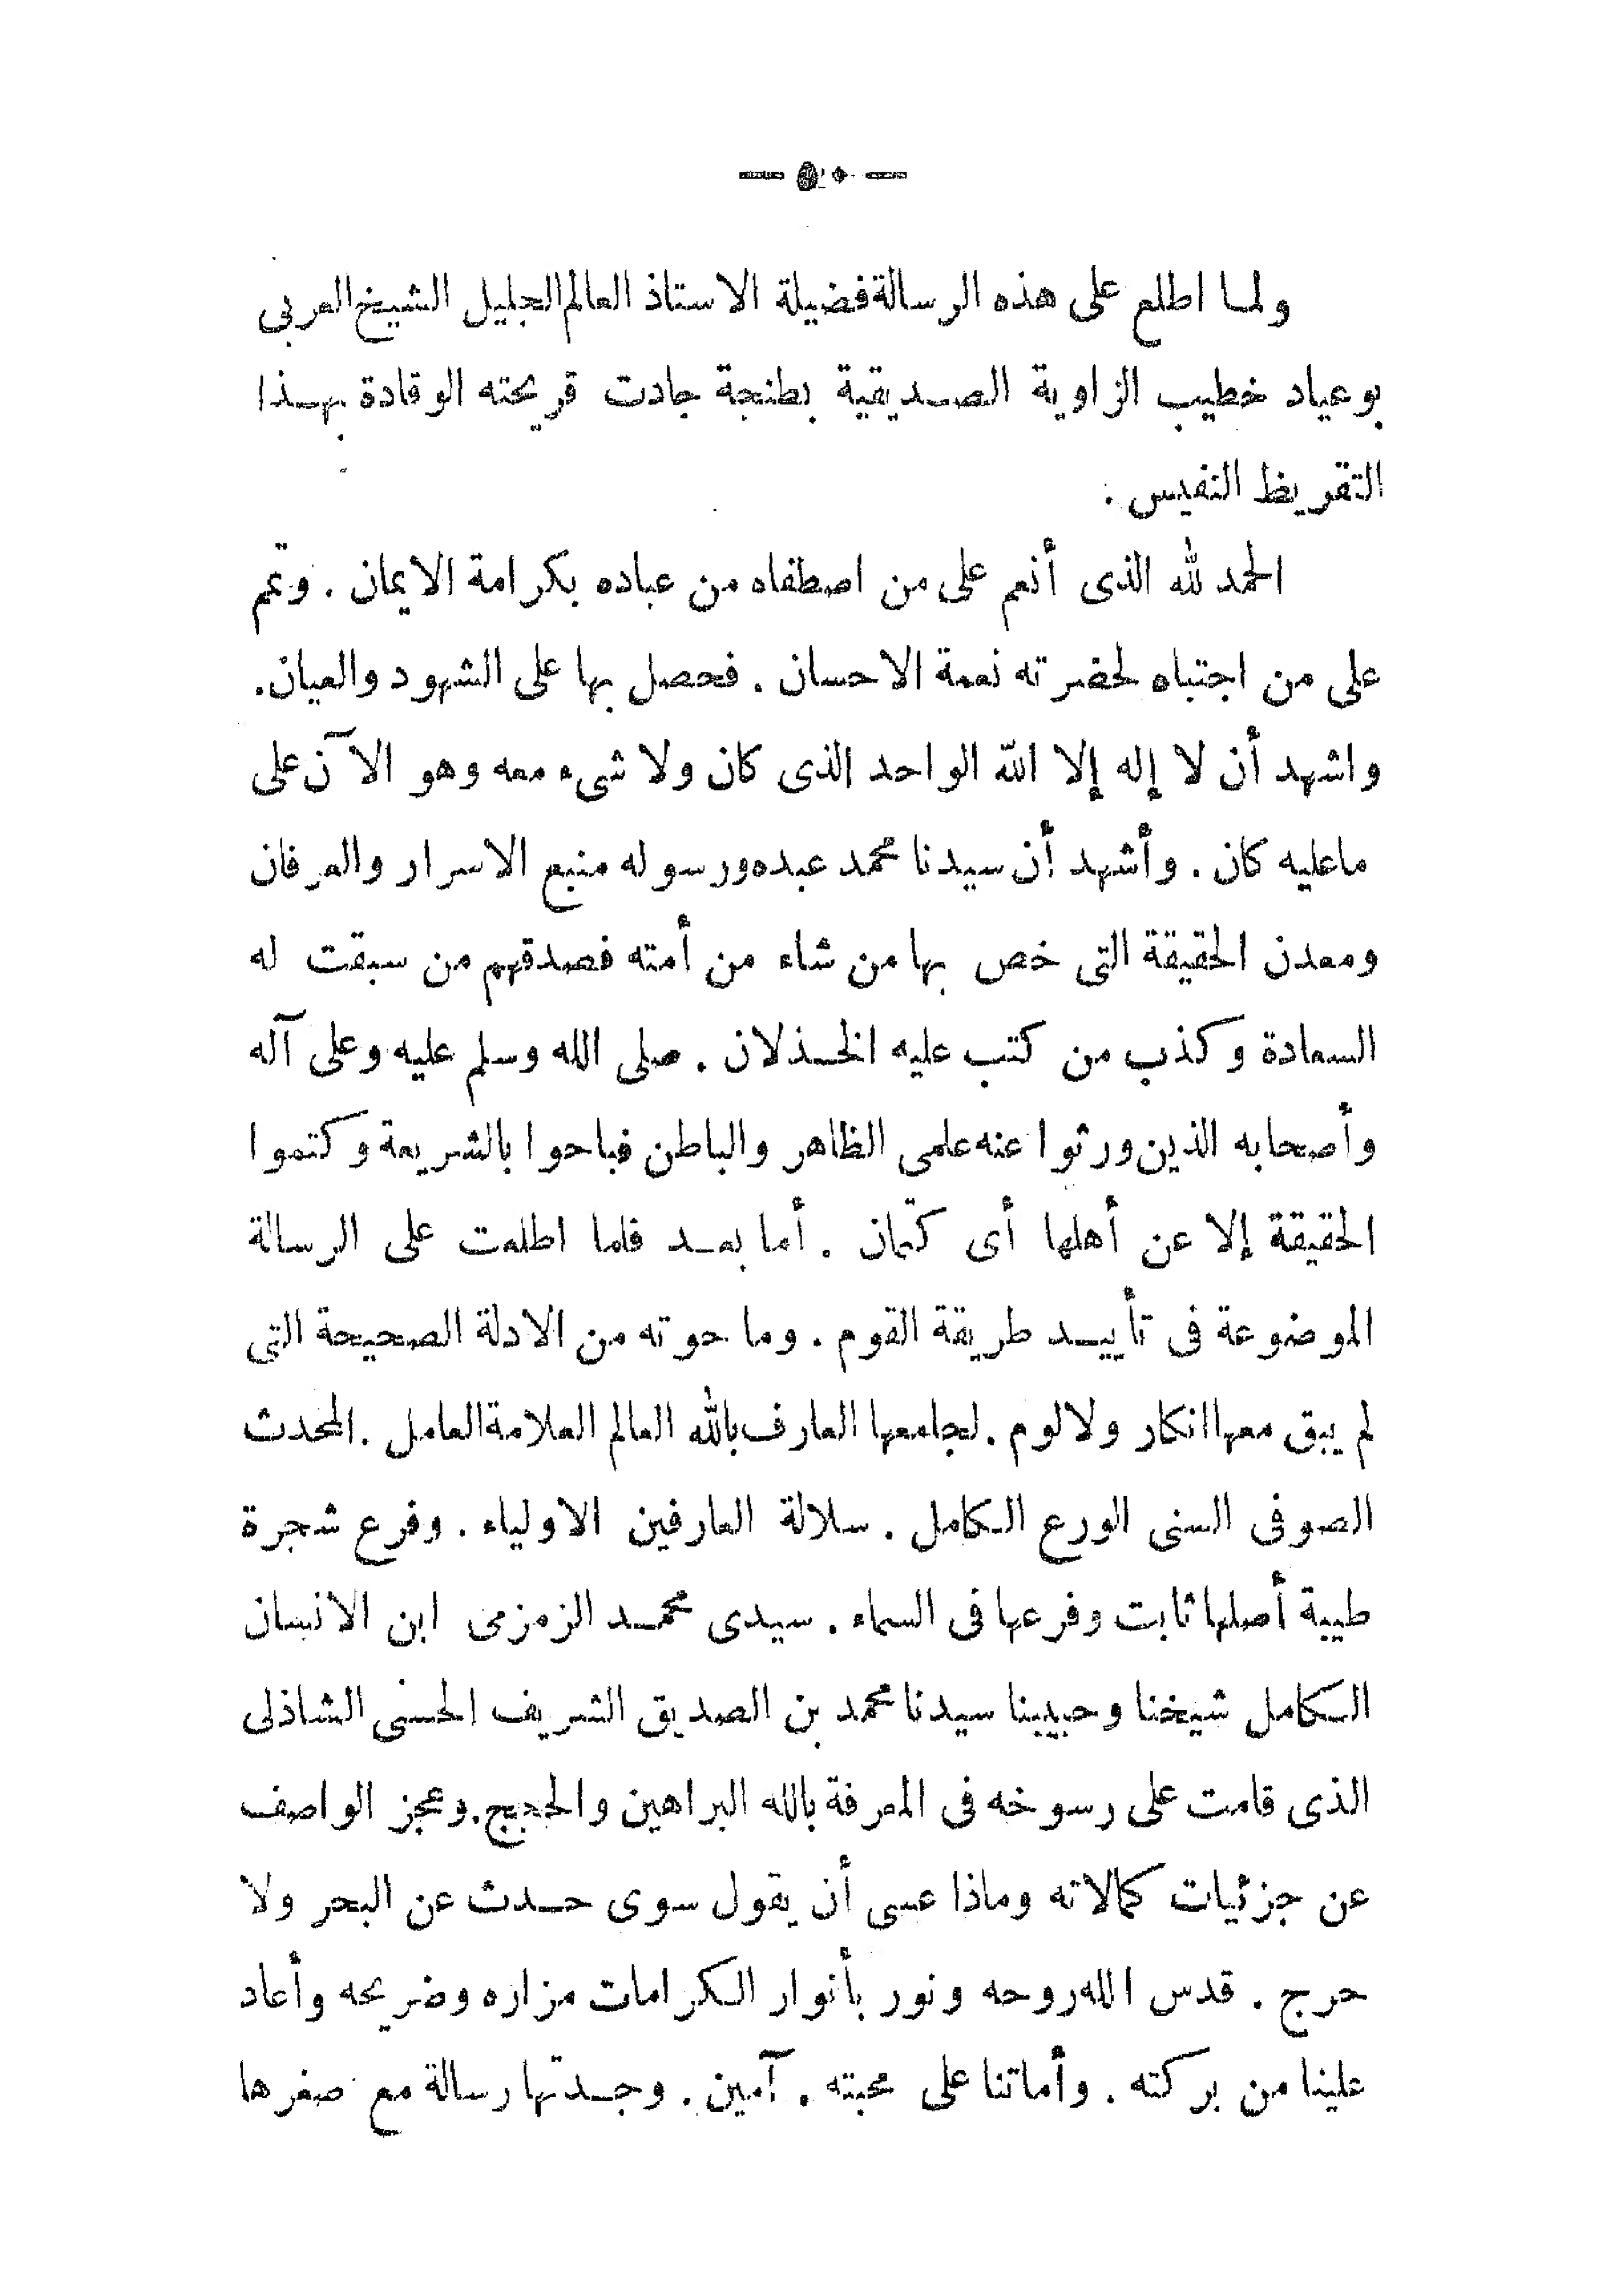 — ٥٠ —
ولما اطلع على هذه الرسالة فضيلة الاستاذ العالم الجليل الشيخ العربى
بوعياد خطيب الزاوية الصديقية بطنجة جادت قريحته الوقادة بهذا
التقريظ النفيس .
الحمد لله الذى أنعم على من اصطفاه من عباده بكرامة الايمان . وتمم
على من اجتباه لحضرته نعمة الاحسان . فحصل بها على الشهود والعيان.
واشهد أن لا إله إلا الله الواحد الذى كان ولا شىء معه وهو الآن على
ماعليه كان . وأشهد أن سيدنا محمد عبده ورسوله منبع الاسرار والعرفان
ومعدن الحقيقة التى خص بها من شاء من أمته فصدقهم من سبقت له
السعادة وكذب من كتب عليه الخذلان . صلى الله وسلم عليه وعلى آله
وأصحابه الذين ورثوا عنه علمى الظاهر والباطن فباحوا بالشريعة وكتموا
الحقيقة إلا عن أهلها أى كتمان . أما بعد فلما اطلعت على الرسالة
الموضوعة فى تأييد طريقة القوم . وما حوته من الادلة الصحيحة التى
لم يبق معها انكار ولا لوم . لجامعها العارف بالله العالم العلامة العامل . المحدث
الصوفى السنى الورع الكامل . سلالة العارفين الاولياء . وفرع شجرة
طيبة أصلها ثابت وفرعها فى السماء . سيدى محمد الزمزمى ابن الانسان
الكامل شيخنا وحبيبنا سيدنا محمد بن الصديق الشريف الحسنى الشاذلى
الذى قامت على رسوخه فى المعرفة بالله البراهين والحجج. وعجز الواصف
عن جزئيات كمالاته وماذا عسى أن يقول سوى حدث عن البحر ولا
حرج . قدس الله روحه ونور بأنوار الكرامات مزاره وضريحه وأعاد
علينا من بركته . وأماتنا على محبته . آمين . وجدتها رسالة مع صغرها